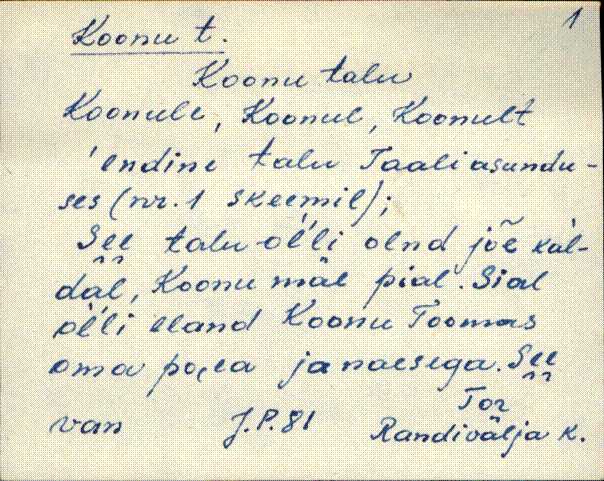 1
Koonu t.
Koonu talu
Koonule, Koonul, Koonult
'endine talu Taali asundu-
ses (nr. 1 skeemil);
See talu oĺli olnd jõe käl-
dal, Koonu mäe pial. Sial
oĺli eland Koonu Toomas
oma poea ja naesega. See
Tor
van J.P. 81 Randivälja k.